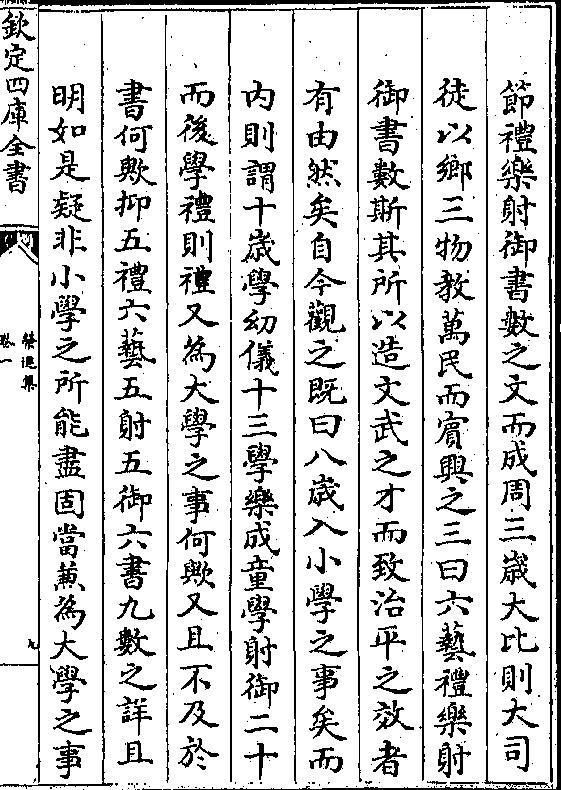 節禮樂射御書數之文而成周三歲大比則大司
徒以鄉三物教萬民而賔興之三曰六藝禮樂射
御書數斯其所以造文武之才而致治平之效者
有由然矣自今觀之既曰八歲入小學之事矣而
内則謂十歲學幼儀十三學樂成童學射御二十
而後學禮則禮又為大學之事何歟又且不及於
書何歟抑五禮六藝五射五御六書九數之詳且
明如是疑非小學之所能盡固當蒹為大學之事
欽定四庫全書
卷一
九